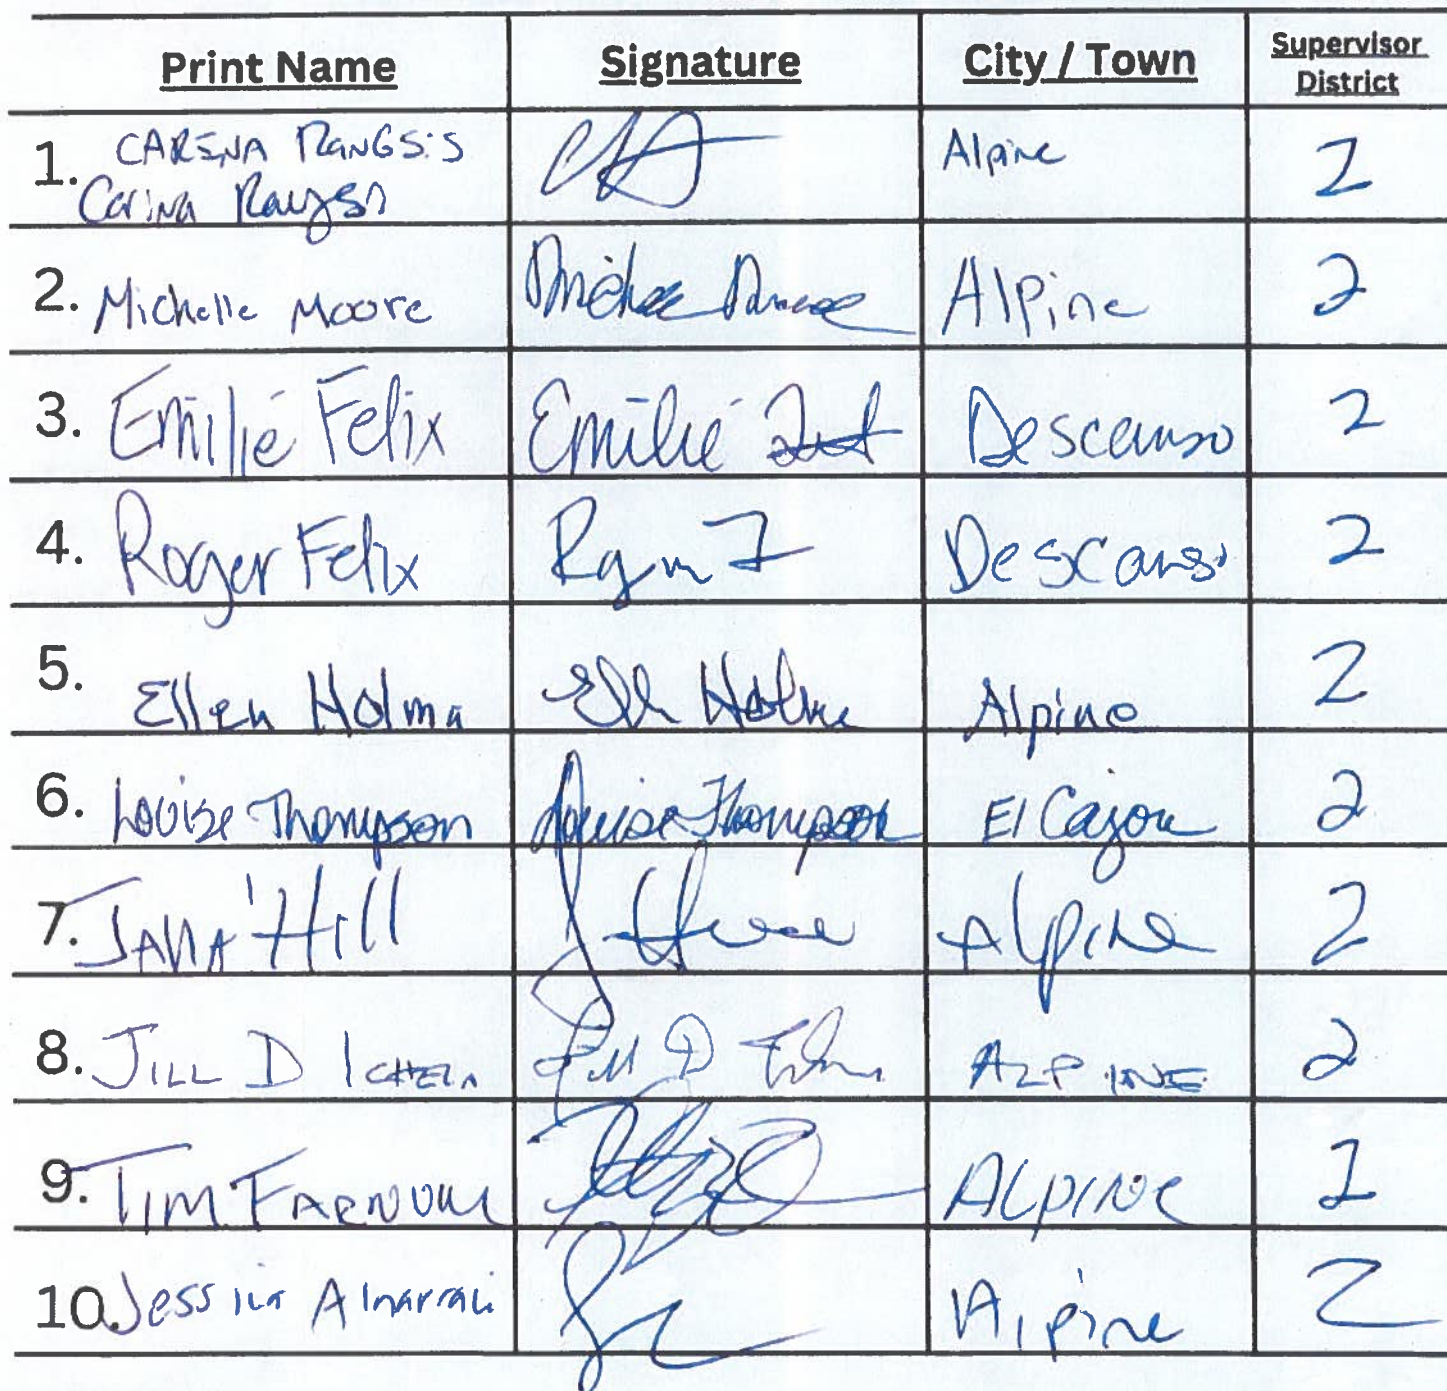 Print Name Signature City / Town Supervisor District
1. CARINA RANGSIS Alpine 2
Carina
2. Michelle Moore Alpine 2
3. Emilie Felix Emilie Descanso 2
4. Roger Felix Descanso 2
5. Ellen Holma Alpine 2
6. Louise Thompson Louise Thompson El Cajon 2
7. JANA Hill Alpine 2
8. JILL D ALPINE 2
9. TIM FARNUM ALPINE 2
10. Jessica Alpine 2